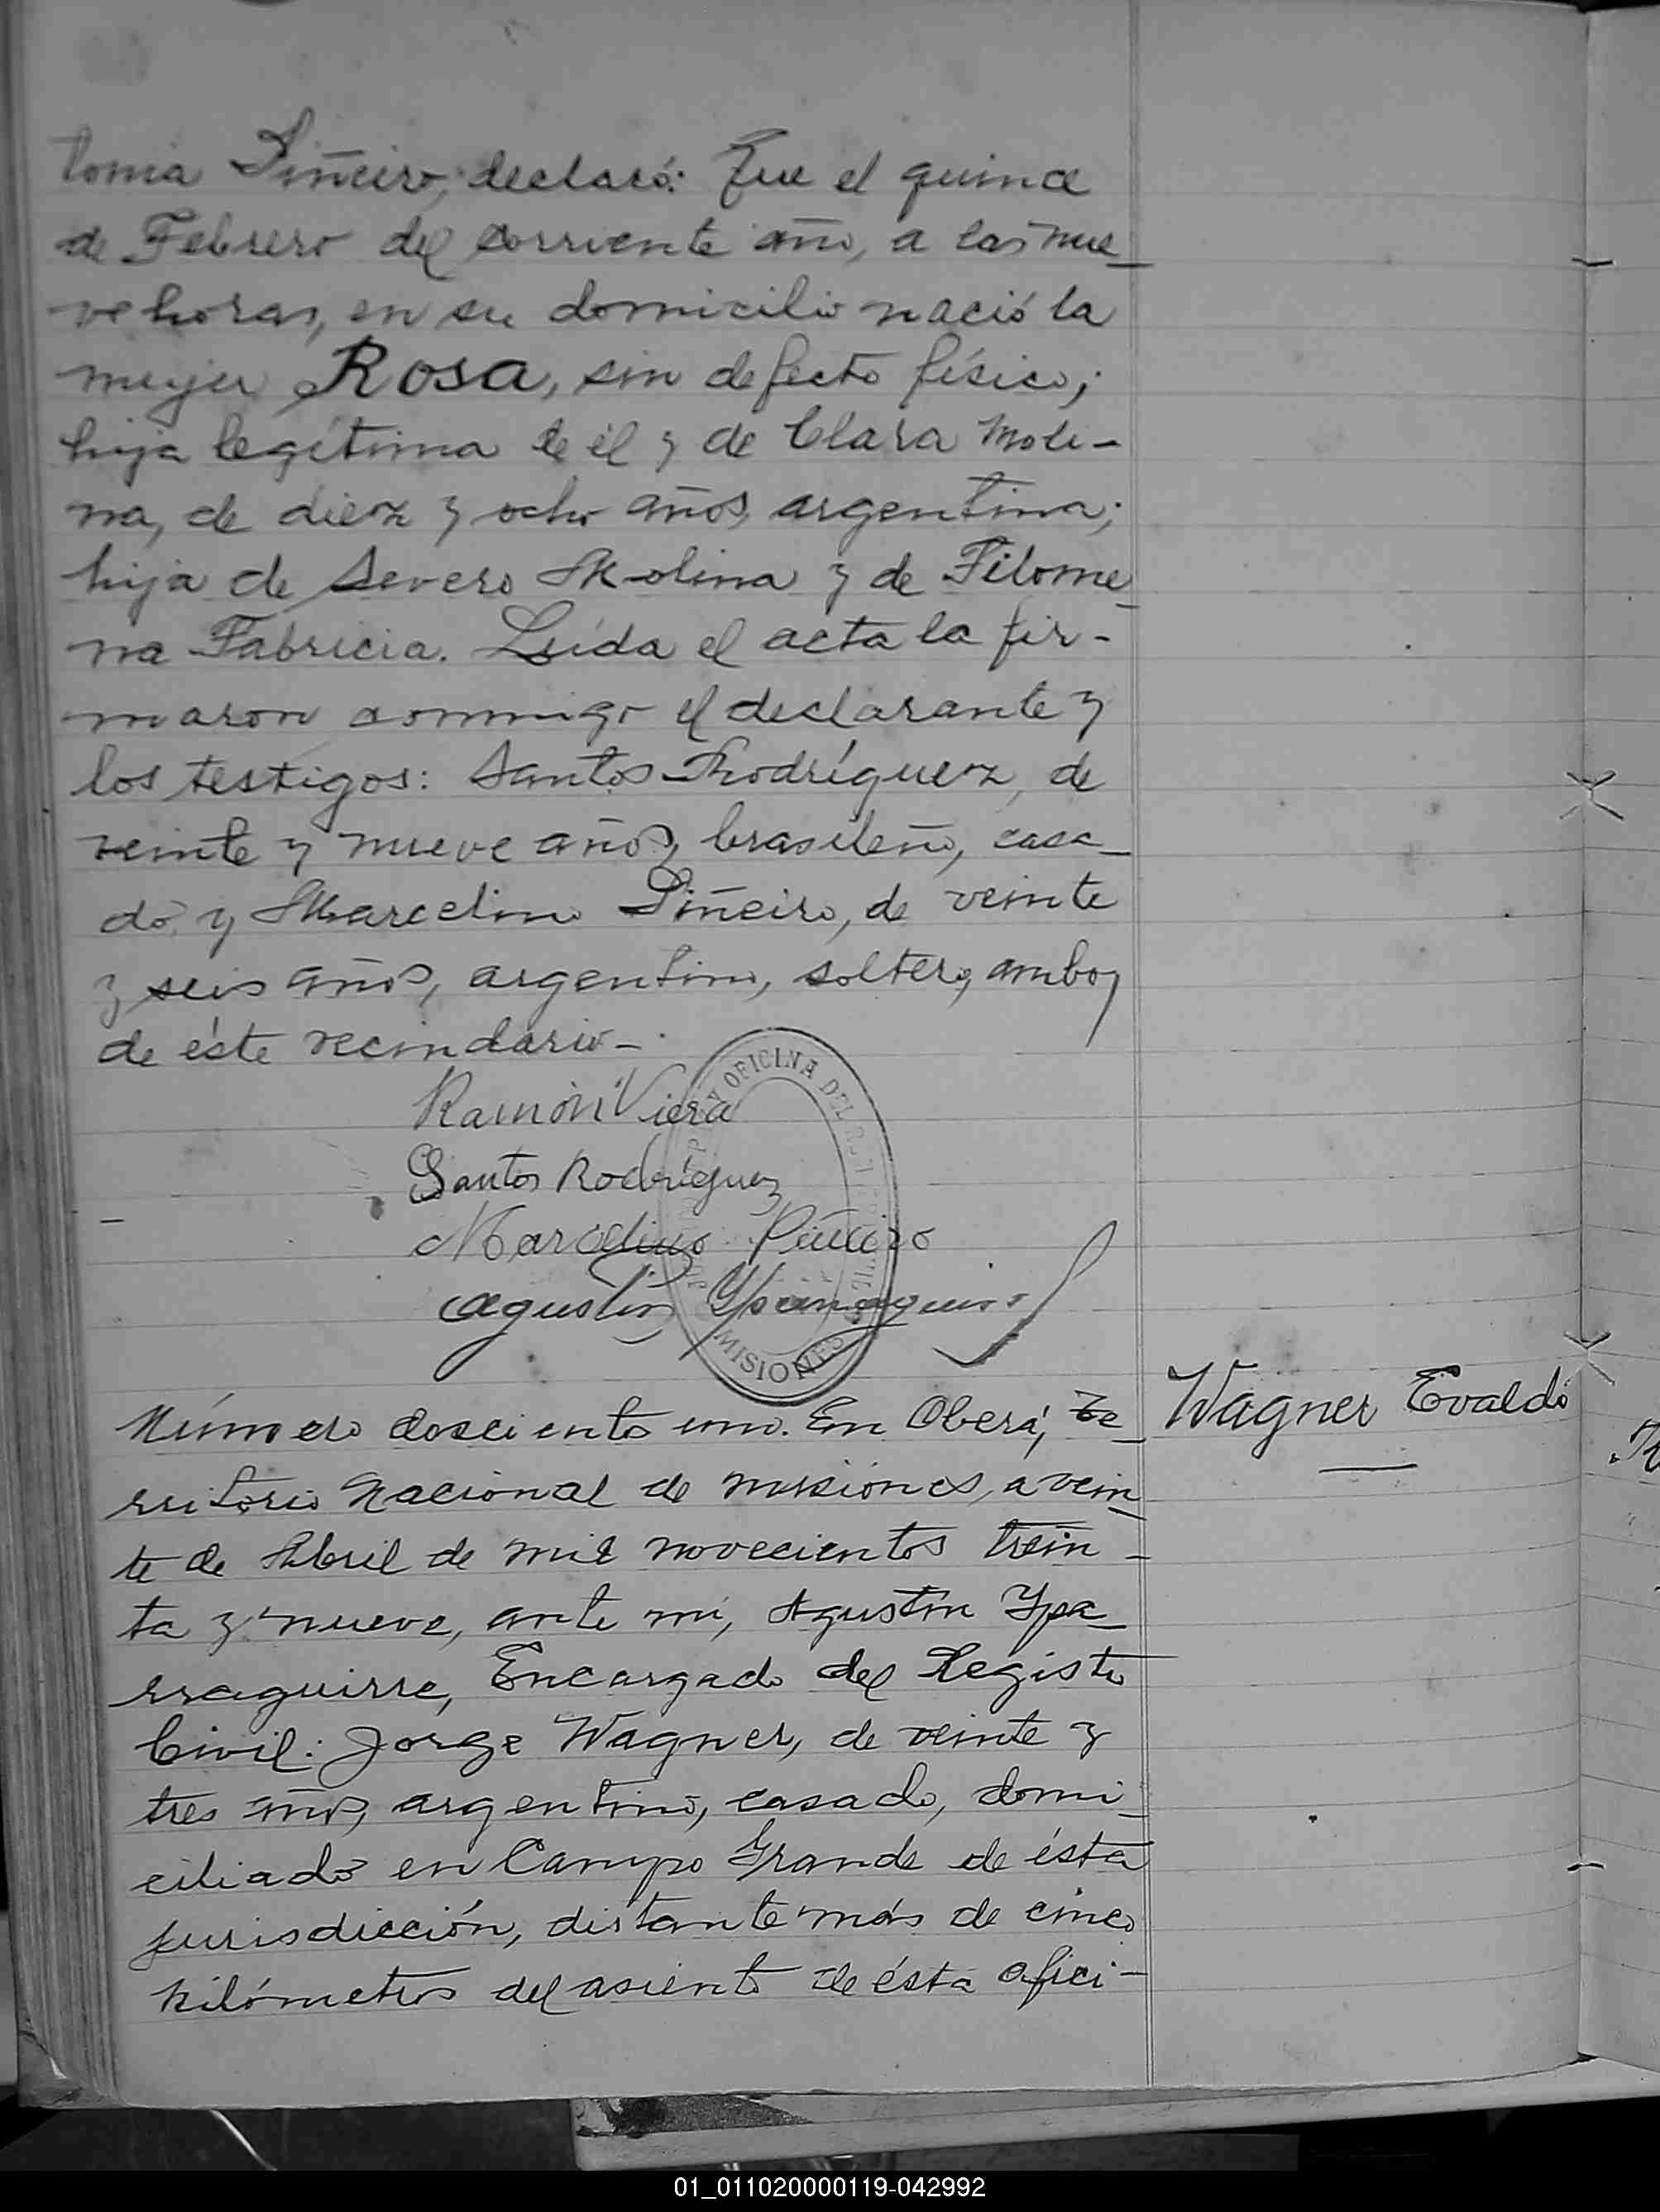 tonia Piñeiro, declaró: Que el quince
de Febrero del corriente año, a las nue_
ve horas, en su domicilio nació la
mujer Rosa, sin defecto físico;
hija legítima de él y de Clara Moli-
na, de diez y ocho años, argentina;
hija de Severo Molina y de Filome_
na Fabricia. Leída el acta la fir-
maron conmigo el declarante y
los testigos: Santos Rodríguez, de
veinte y nueve años, brasileño, casa_
do y Marcelino Piñeiro, de veinte
y seis años, argentino, soltero, ambos
de éste vecindario_.
Ramón Viera
Santos Rodríguez
Marcelino Piñeiro
Agustín Yparraguirre
OFICINA DEL REGISTRO CIVIL
MISIONES
Número doscientos uno. En Oberá, Te_
rritorio Nacional de Misiones, a vein_
te de Abril de mil novecientos trein_
ta y nueve, ante mí, Agustín Ypa_
rraguirre, Encargado del Registro
Civil: Jorge Wagner, de veinte y
tres años, argentino, casado, domi_
ciliado en Campo Grande de ésta
jurisdicción, distante más de cinco
kilómetros del asiento de ésta ofici-
Wagner Evaldo
01_011020000119-042992